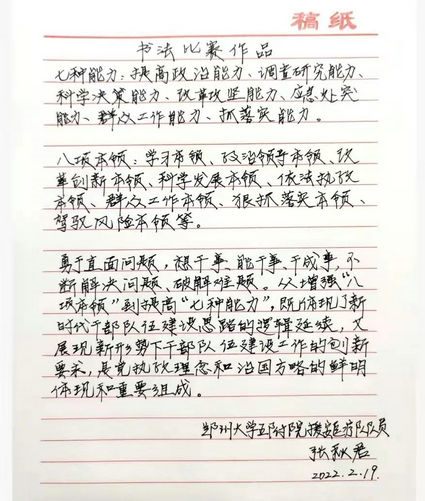 稿纸
书法比赛作品
七种能力：提高政治能力、调查研究能力、
科学决策能力、改革攻坚能力、应急处突
能力、群众工作能力、抓落实能力。
八项本领：学习本领、政治领导本领、改
革创新本领、科学发展本领、依法执政
本领、群众工作本领、狠抓落实本领、
驾驭风险本领等。
勇于直面问题，想干事、能干事、干成事，不
断解决问题，破解难题。从增强“八
项本领”到提高“七种能力”，既体现了新
时代干部队伍建设思路的逻辑延续，又
展现新形势下干部队伍建设工作的创新
要求，是党执政理念和治国方略的鲜明
体现和重要组成。
郑州大学五附院援疆医疗队队员
张秋君
2022.2.19.